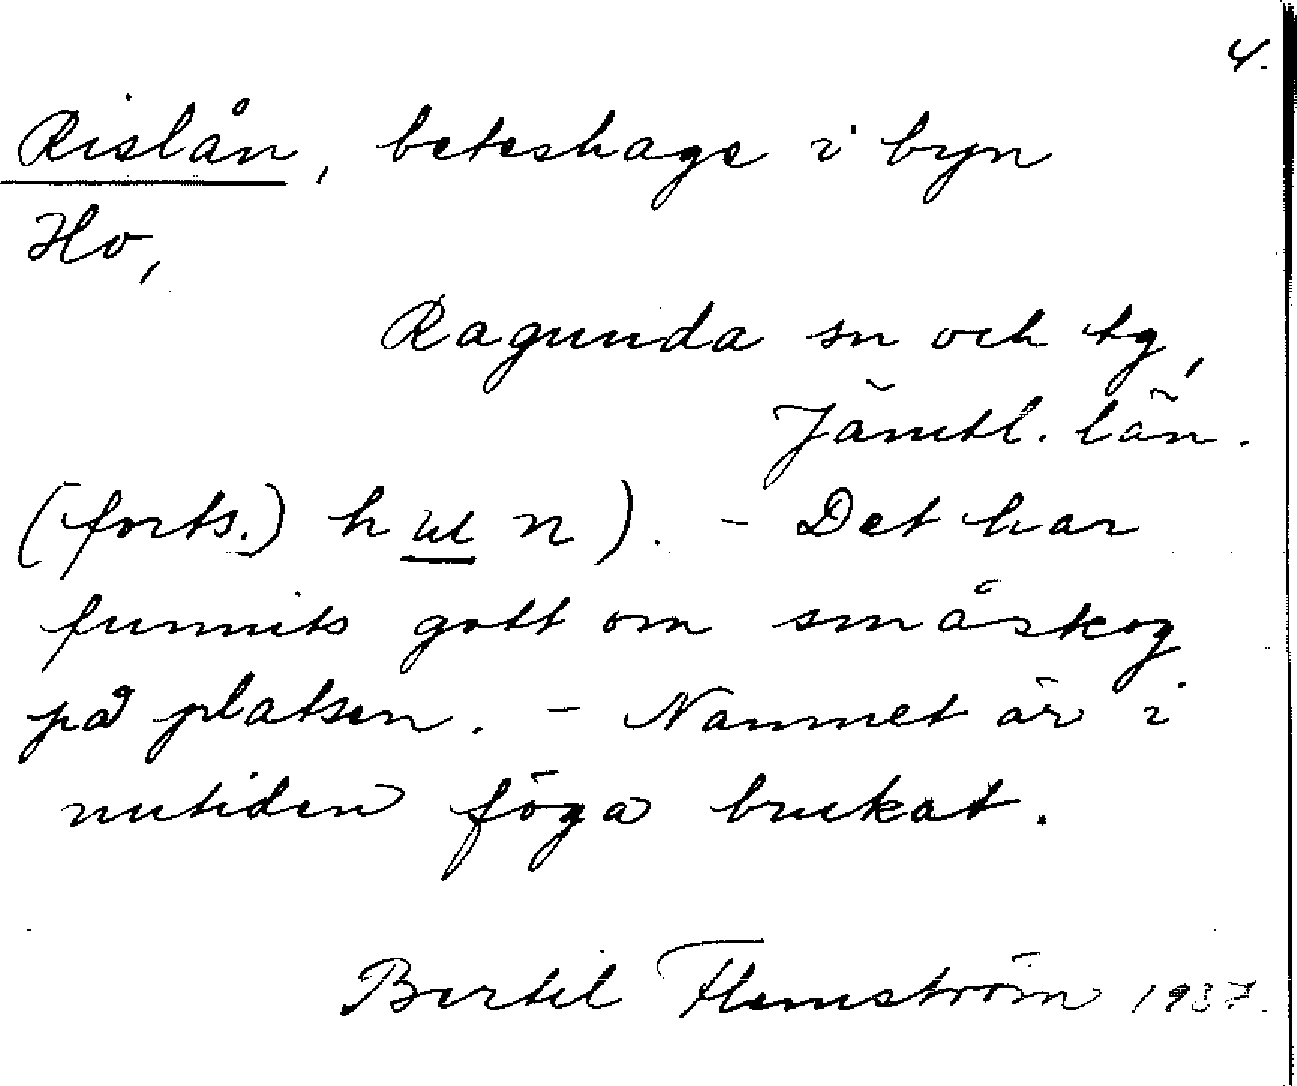 4.
Rislån, beteshage i byn
Ho,
Ragunda sn och tg,
Jämtl. län.
(forts.) h ut n). - Det har
funnits gott om småskog
på platsen. - Namnet är i
nutiden föga brukat.
Bertil Flemström 1937.